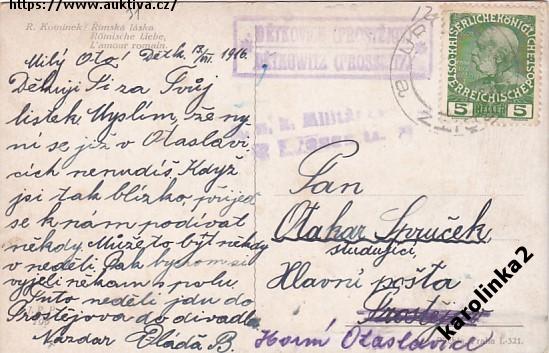 https://www.auktiva.cz/
31
R. Kominek: Římská láska.
Römische Liebe.
L'amour romain.
Milý Oto! Dětk. 13/VII. 1916.
Děkuji Ti za Tvůj
lístek. Myslím, že ny-
ní se již v Otaslavi-
cích nenudíš. Když
jsi tak blízko, přijeď
se k nám podívat
někdy. Může to být někdy
v neděli. Pak bychom si
vyjeli někam spolu.
Tuto neděli jdu do
Prostějova do divadla.
Nazdar Vláďa B.
DĚTKOVICE (PROSTĚJOV)
DĚTKOWITZ (PROSSNITZ)
k. k. Militär
KAISERLICHE KÖNIGLICHE
ÖSTERREICHISCHE
5 HELLER 5
Pan
Otakar Spruček
studující,
Hlavní pošta
Prostějov
Horní Otaslavice
Praha L-321.
karolinka2